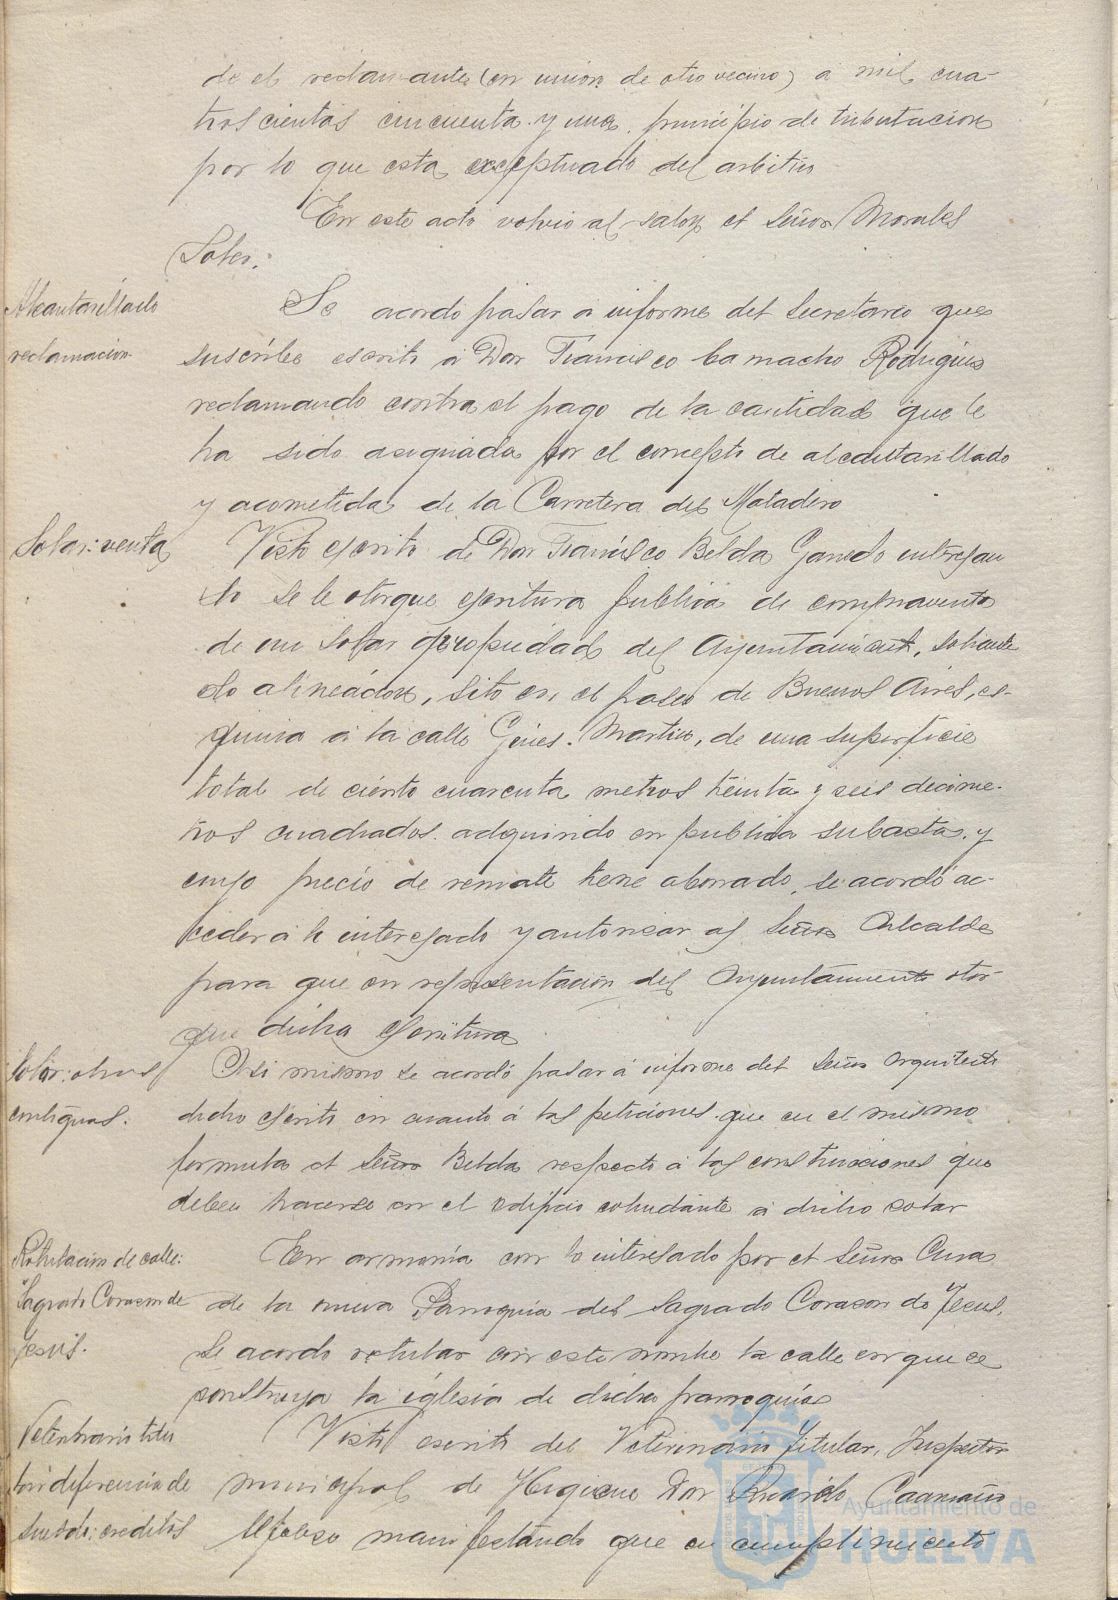 de el reclamante (en union de otro vecino) a mil cua-
troscientas cincuenta y una, principio de tributacion
por lo que esta exceptuado del arbitrio
En este acto volvio al salon el Señor Morales
Soler.
Alcantarillado
reclamacion
Se acordó pasar a informe del Secretario que
suscribe escrito a Don Francisco Camacho Rodriguez
reclamando contra el pago de la cantidad que le
ha sido asignada por el concepto de alcantarillado
y acometida de la Carretera del Matadero
Solar: venta
Visto escrito de Don Francisco Belda Ganedo interesan
do se le otorgue escritura publica de compraventa
de un solar propiedad del Ayuntamiento,
do alineador, sito en el paseo de Buenos Aires, es-
quina a la calle Gines Martin, de una superficie
total de ciento cuarenta metros treinta y seis decime-
tros cuadrados adquirido en publica subasta y
cuyo precio de remate tiene abonado, se acordó ac-
ceder a lo interesado y autorizar al Señor Alcalde
para que en representacion del Ayuntamiento otor
gue dicha escritura
Solar: obras
contiguas.
Asi mismo se acordó pasar a informe del Señor Arquitecto
dicho escrito en cuanto á las peticiones que en el mismo
formula el Señor Belda respecto a las construcciones que
deben hacerse en el edificio colindante a dicho solar
Rotulacion de calle:
Sagrado Corazon de
Jesús.
En armonia con lo interesado por el Señor Cura
de la nueva Parroquia del Sagrado Corazon de Jesus,
se acordo rotular con este nombre la calle en que se
construya la iglesia de dicha parroquia
Veterinario titu
lar: diferencia de
sueldo: creditos
Visto escrito del Veterinario titular, Inspector
municipal de Higiene Don Ricardo Caamaño
manifestando que en cumplimiento
Ayuntamiento de
HUELVA